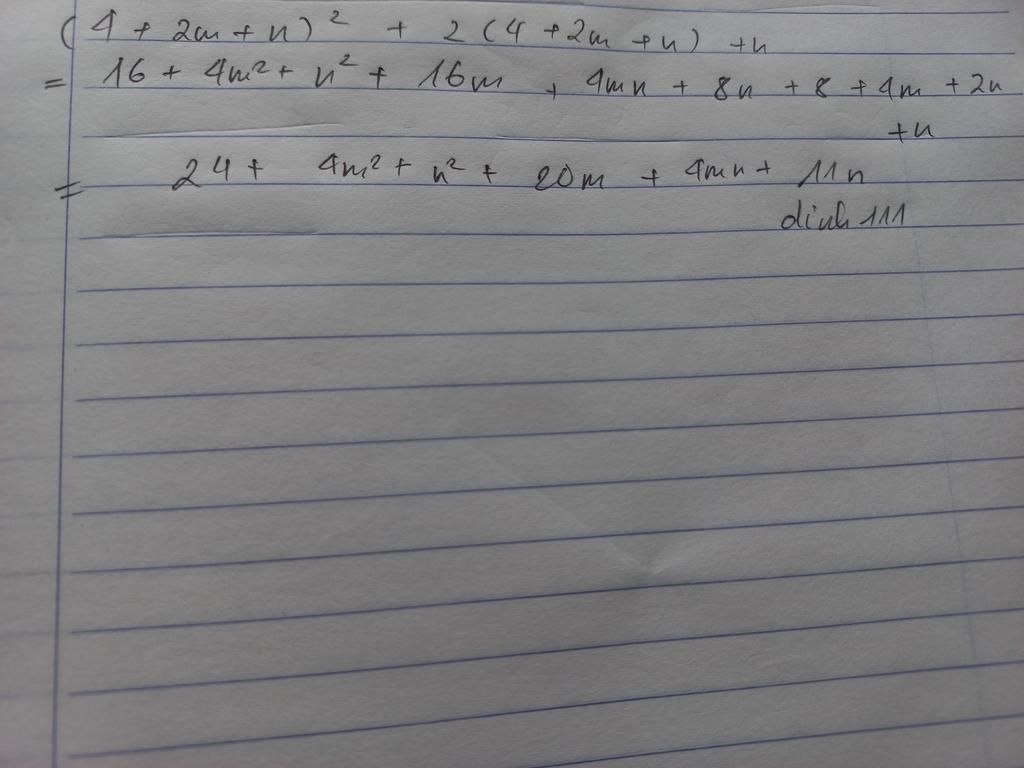 (4 + 2m + n)² + 2(4 + 2m + n) + n
= 16 + 4m² + n² + 16m + 4mn + 8n + 8 + 4m + 2n
+ n
= 24 + 4m² + n² + 20m + 4mn + 11n
dinh 111